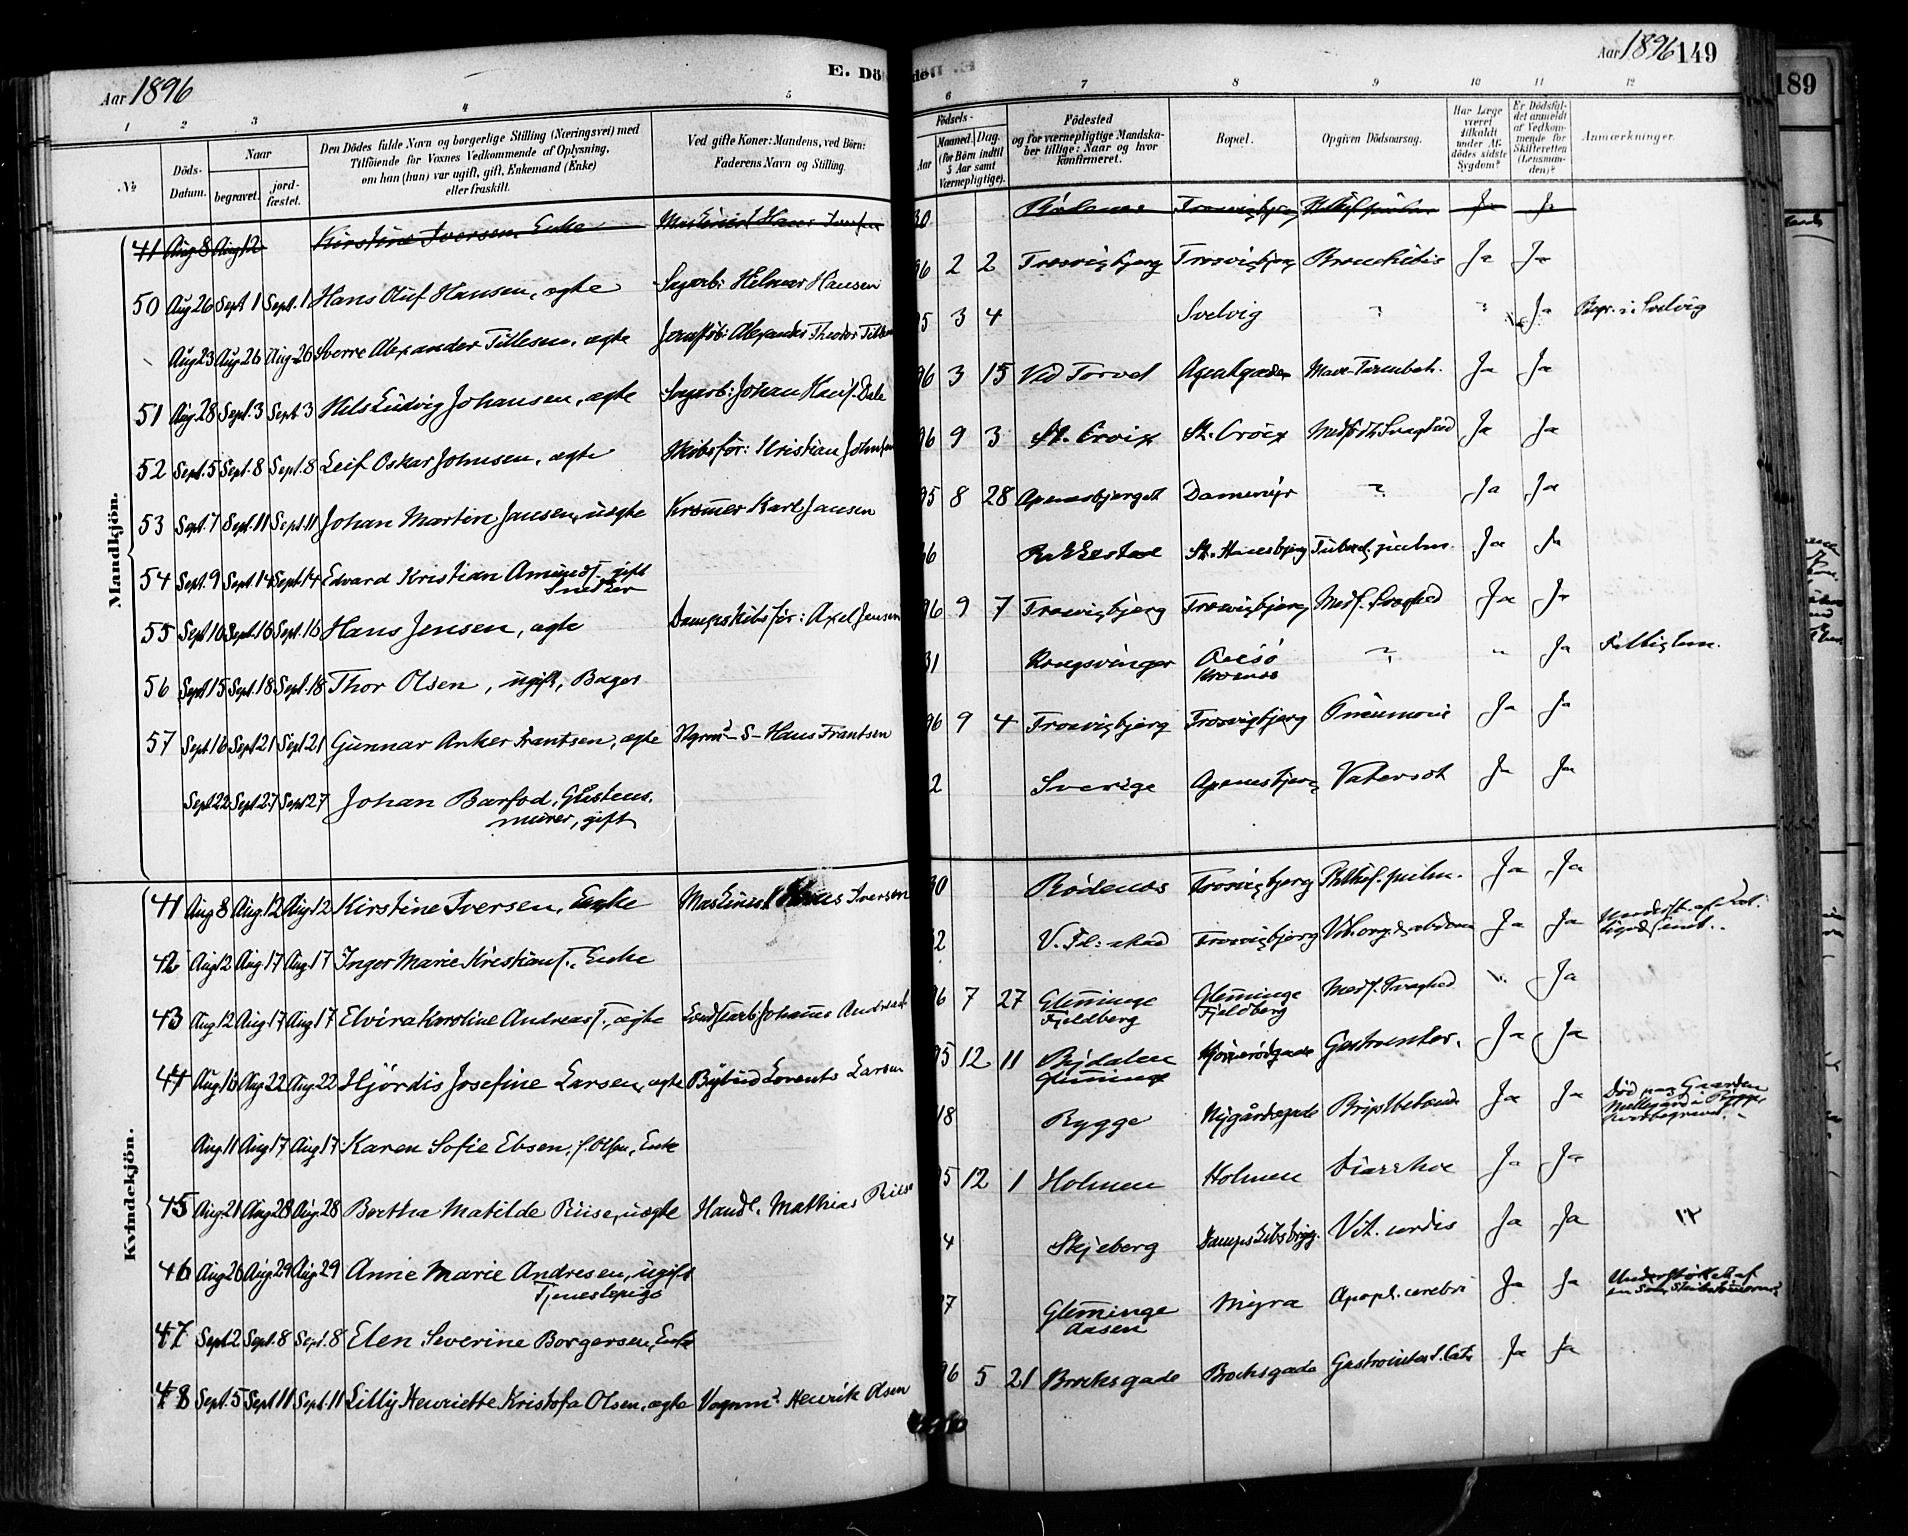 Aar 1896
E. Dö
döti
Aar 1896 149
189
1 2 3 4 5 6 7 8 9 10 11 12
№
Döds-Datum.
Naar
begravet.
jord-fæstet.
Den Dödes fulde Navn og borgerlige Stilling (Næringsvei) med
Tilföiende for Voxnes Vedkommende af Oplysning,
om han (hun) var ugift, gift, Enkemand (Enke)
eller fraskilt.
Ved gifte Koner: Mandens, ved Börn:
Faderens Navn og Stilling.
Födsels-
Aar
Maaned. Dag.
(for Börn indtil
5 Aar samt
Værnepligtige).
Födested
og for værnepligtige Mandska-
ber tillige: Naar og hvor
konfirmeret.
Bopæl.
Opgiven Dödsaarsag.
Har Læge
været
tilkaldt
under Af-
dödes sidste
Sygdom?
Er Dödsfal-
det anmeldt
af Vedkom-
mende for
Skifteretten
(Lensman-
den)?
Anmærkninger.
Mandkjön.
41 Aug 8 Aug 12 Kirstine Iversen Enke Maskinist Hans Iversen 30 Rödenes Trosvigbjerg Ja Ja
50 Aug 26 Sept 1 Sept. 1 Hans Oluf Hansen, ægte Sagarb: Helmer Hansen 96 2 2 Trosvigbjerg Trosvigbjerg Bronchitis Ja Ja
Aug 23 Aug 26 Aug 26 Sverre Alexander Tillesen, ægte Alexander Theodor 95 3 4 Svelvig " " Ja Begr. i Svelvig
51 Aug 28 Sept. 3 Sept. 3 Nils Ludvig Johansen, ægte Sagarb: Johan Hans. Dale 96 3 15 Ved Torvet Ja Ja
52 Sept. 5 Sept. 8 Sept. 8 Leif Oskar Johnsen, ægte Skibsför: Kristian Johnsen 96 9 3 St. Croix St. Croix Medfödt Svaghed Ja Ja
53 Sept. 7 Sept. 11 Sept 11 Johan Martin Jansen, uægte Kræmer Karl Jansen 95 8 28 Apenesbjerget Dammyr ? Ja Ja
54 Sept. 9 Sept. 14 Sept. 14 Edvard Kristian Amunds. gift
Snedker 66 Rakkestad St. Hansbjerg Tuberc. pulm. Ja Ja
55 Sept 10 Sept. 16 Sept. 16 Hans Jensen, ægte Dampskibsför: Axel Jensen 96 9 7 Trosvigbjerg Trosvigbjerg Medf. Svaghed Ja Ja
56 Sept 15 Sept. 18 Sept. 18 Thor Olsen, ugift, Bager 31 Kongsvinger
Kroenæs ? " Ja Fattiglem.
57 Sept. 16 Sept 21 Sept 21 Gunnar Anker Frantsen, ægte S- Hans Frantsen 96 9 4 Trosvigbjerg Trosvigbjerg Pneumoni Ja Ja
Sept 22 Sept. 27 Sept 27 Johan Barfod, Glistens.
murer, gift 2 Sverige Apenesbjerg Vatersot Ja Ja
Kvindekjön.
41 Aug 8 Aug. 12 Aug 12 Kirstine Iversen, Enke Maskinist Hans Iversen 30 Rödenes Trosvigbjerg Phthis. pulm. Ja Ja
42 Aug 12 Aug. 17 Aug. 17 Inger Marie Kristians., Enke 2 Trosvigbjerg Ja Ja
43 Aug 12 Aug. 17 Aug 17 Elvira Karoline Andreas., ægte Johannes Andreas. 96 7 27 Glemminge
Fjeldberg Glemminge
Fjeldberg Medf. Svaghed " Ja
44 Aug. 16 Aug 22 Aug. 22 Hjördis Josefine Larsen, ægte Bybud Lorents Larsen 95 12 11 Bydalen
Glemminge Gastroenter. Ja Ja
Aug. 11 Aug 17 Aug. 17 Karen Sofie Ebsen, f. Olsen, Enke 18 Rygge Nygårdsgade Ja Ja Död paa Gaarden
45 Aug. 21 Aug 28 Aug. 28 Bertha Matilde Riise, uægte Handl. Mathias Riise 95 12 1 Holmen Holmen Diarrhoe Ja Ja
46 Aug 26 Aug. 29 Aug. 29 Anne Marie Andresen, ugift
Tjenestepige 4 Skjeberg Dampskibsbrygg. Vit. cordis Ja Ja
47 Sept 2 Sept. 8 Sept. 8 Elen Severine Borgersen, Enke 27 Glemminge
Aasen Myra Apopl. cerebri Ja Ja Understöttet af
48 Sept. 5 Sept 11 Sept. 11 Lilly Henriette Kristofa Olsen, ægte Vognm. Henrik Olsen 96 5 21 Brocksgade Brocksgade Ja Ja